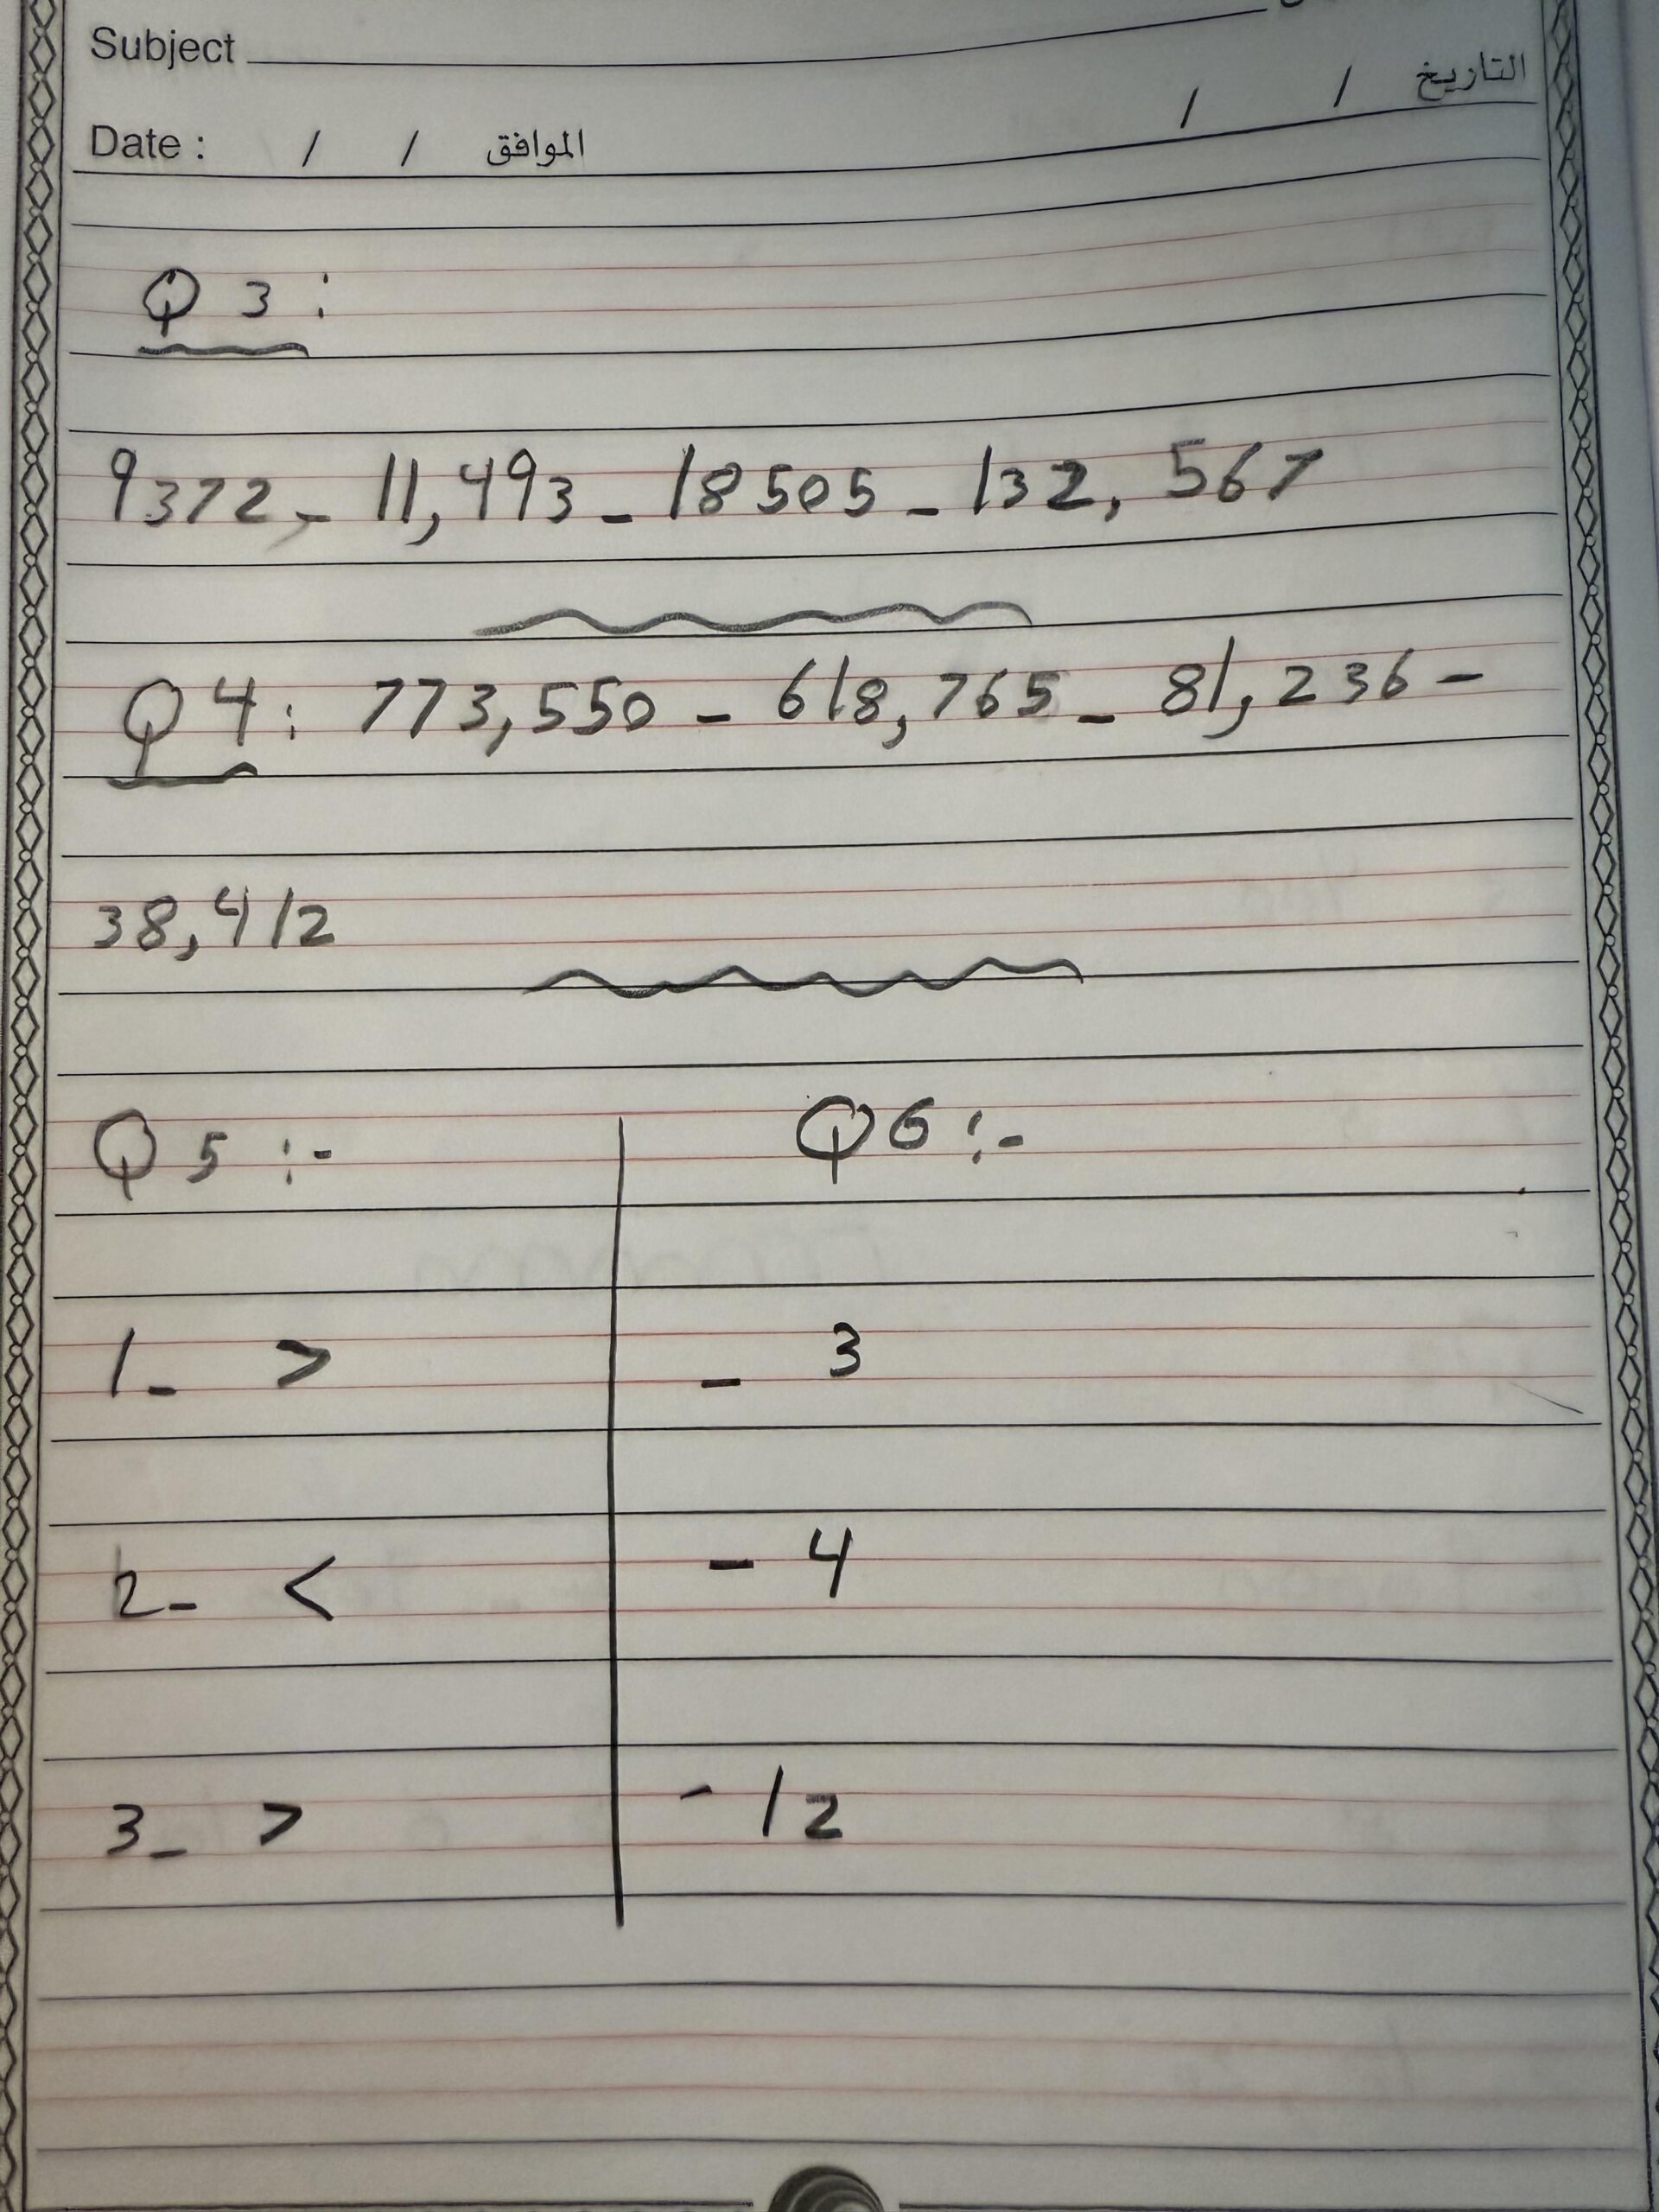 Subject
التاريخ / /
Date : / / الموافق
Q 3 :
9372 - 11,493 - 18505 - 132, 567
Q 4 : 773,550 - 618,765 - 81,236 -
38,412
Q 5 :-
1- >
2- <
3- >
Q6 :-
- 3
- 4
- 12